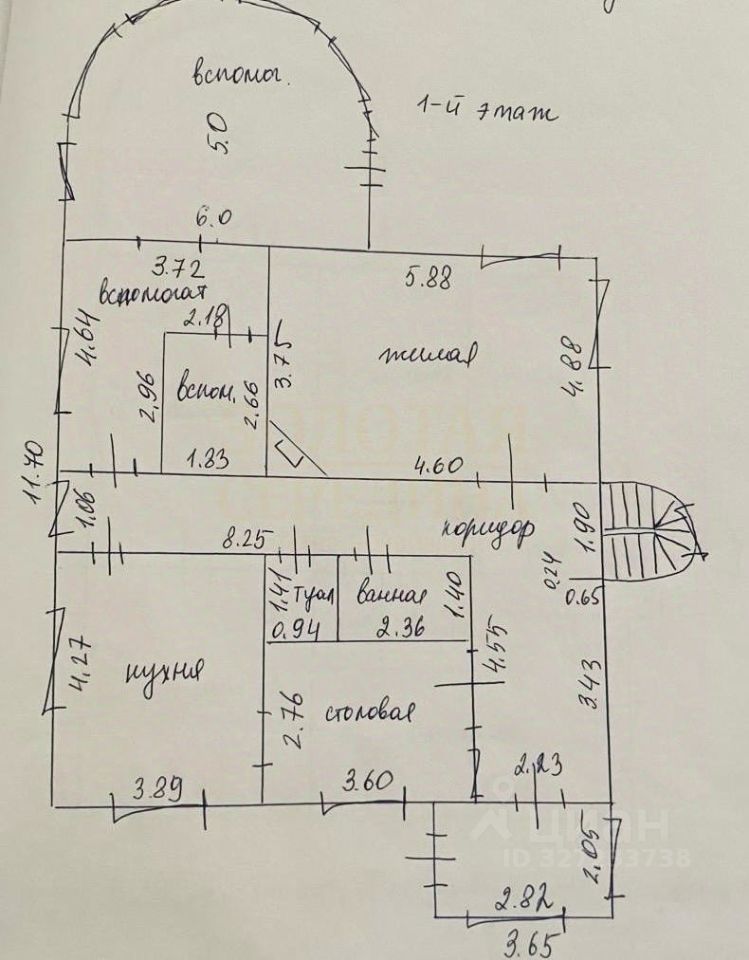 вспомог.
1-й этаж
5.0
6.0
3.72
5.88
вспомогат
2.18
4.64
3.75
жилая
4.88
2.96
вспом.
2.66
1.83
4.60
11.70
1.06
8.25
коридор
1.90
0.24
0.65
1.41
туал
ванная
1.40
0.94
2.36
4.27
кухня
4.55
3.43
2.76
столовая
3.89
3.60
2.23
циан
2.05
2.82
3.65